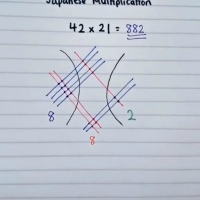 Japanese Multiplication
42 x 21 = 882
8
2
8